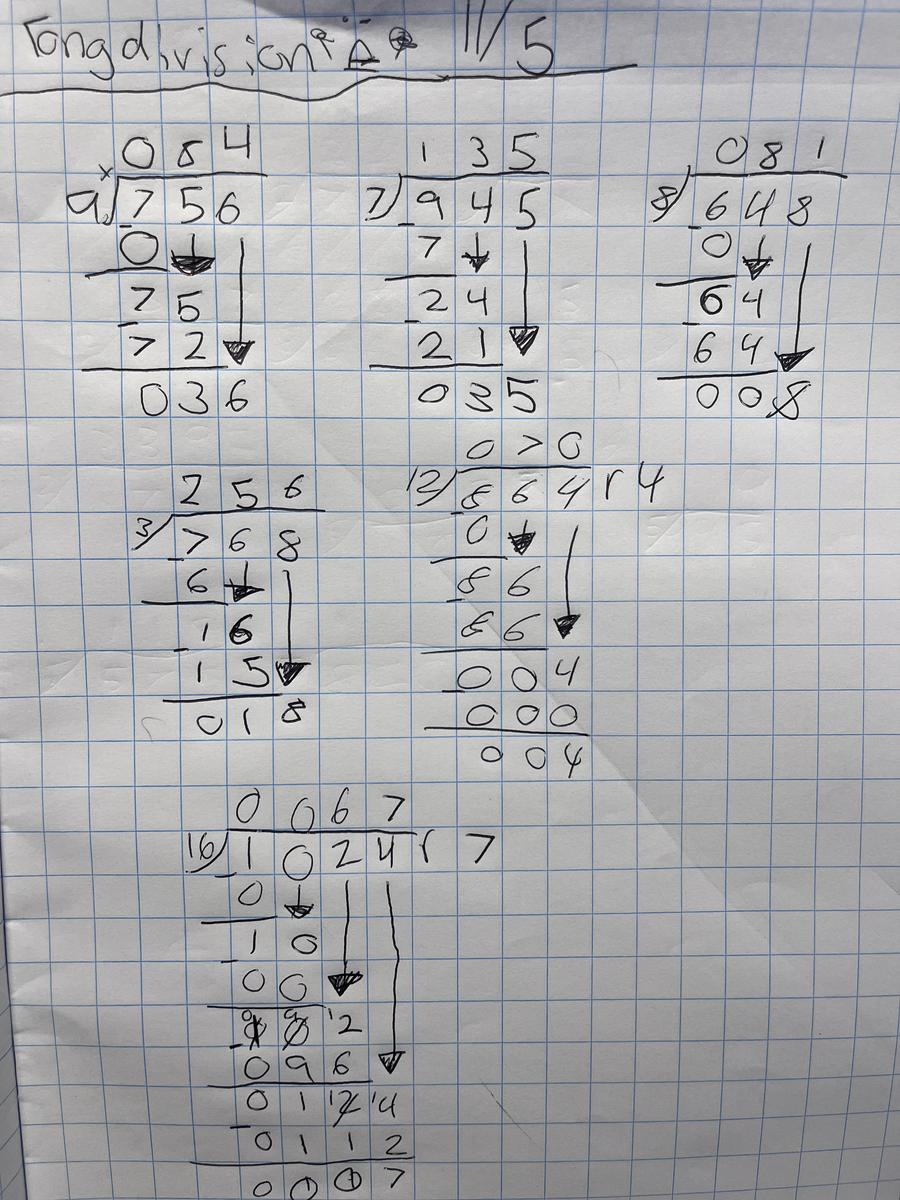 Long division 11/5
0 8 4
9 7 5 6
- 0
7 5
- 7 2
0 3 6
1 3 5
7 9 4 5
- 7
2 4
- 2 1
0 3 5
0 8 1
8 6 4 8
- 0
6 4
- 6 4
0 0 8
2 5 6
3 7 6 8
- 6
1 6
- 1 5
0 1 8
0 7 0
12 8 6 4 r 4
- 0
8 6
- 8 6
0 0 4
- 0 0 0
0 0 4
0 0 6 7
16 1 0 2 4 r 7
- 0
1 0
- 0 0
1 0 12
- 0 9 6
0 1 12 14
- 0 1 1 2
0 0 0 7